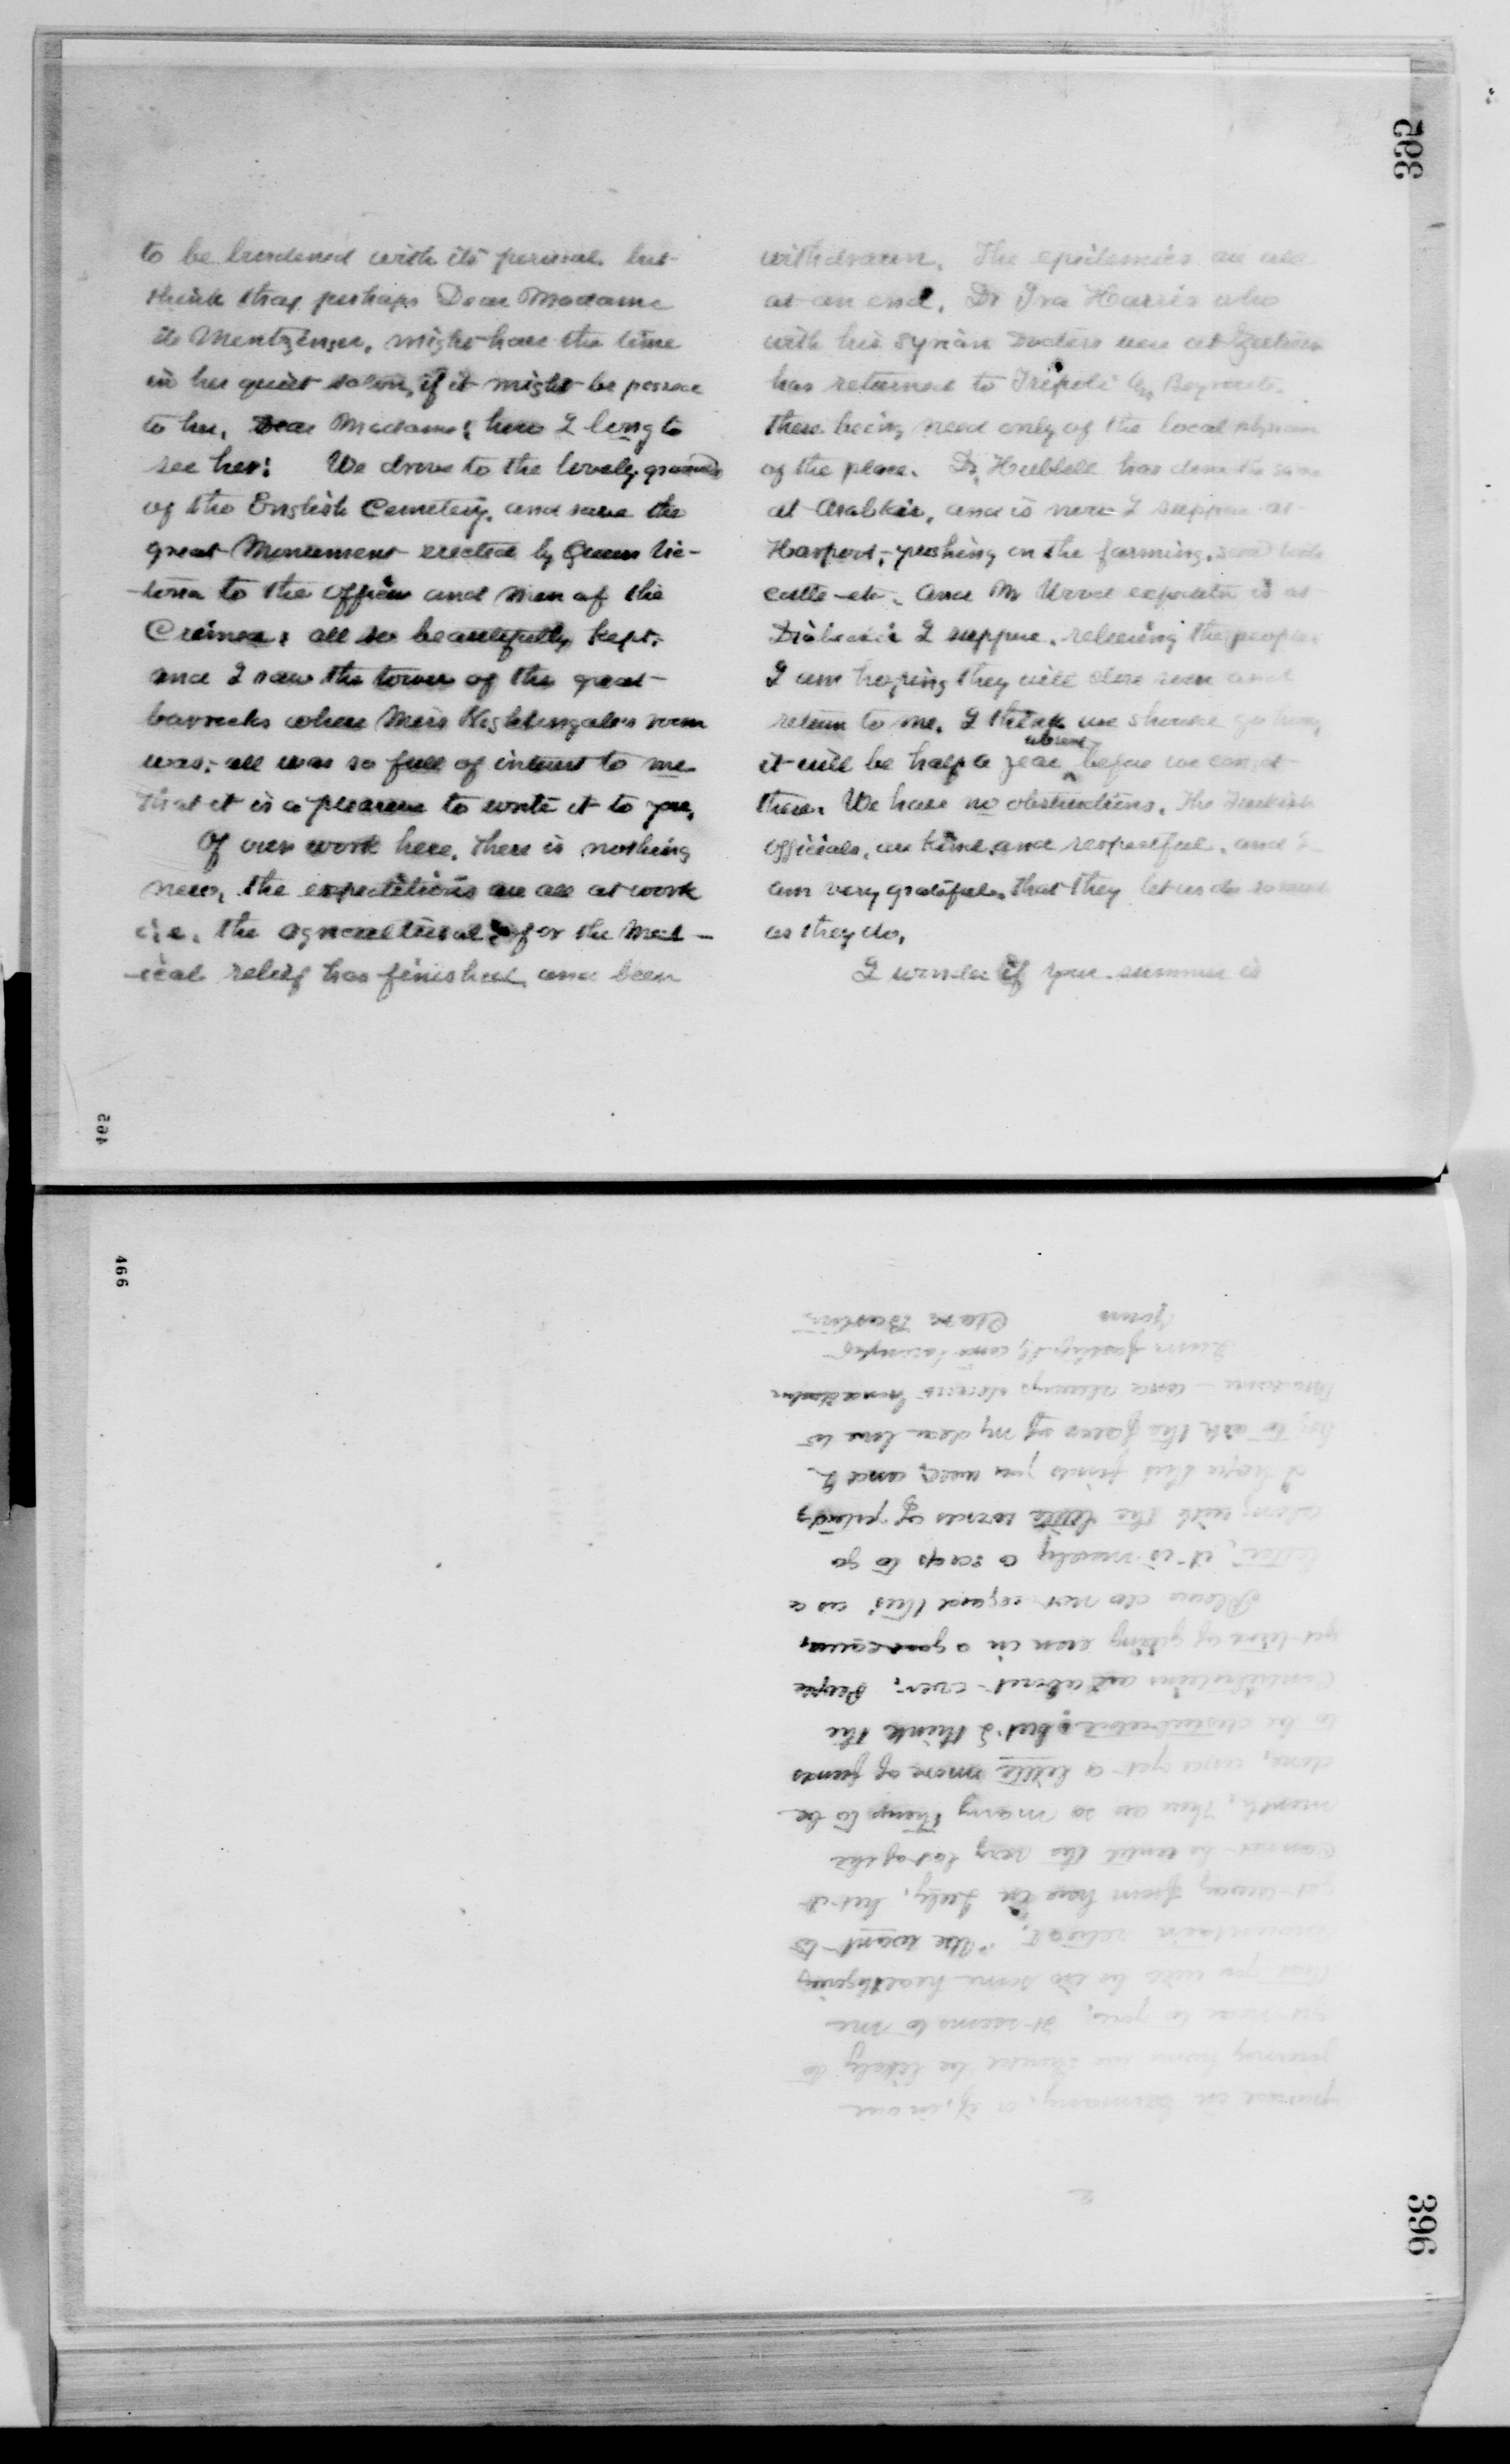 395
to be burdened with its perusal. but
think that perhaps Dear Madame
de Mentzinger, might have the time
in her quiet salon, if it might be passed
to her, Dear Madame; how I long to
see her! We drove to the lovely grounds
of the English Cemetery, and saw the
great Monument erected by Queen Vic-
toria to the officers and men of the
Crimea; all so beautifully kept;
and I saw the tower of the great
barracks where Miss Nightingale's room
was; all was so full of interest to me
that it is a pleasure to write it to you.
Of our work here, there is nothing
new, the expeditions are all at work
i,e, the agricultural; for the Med-
-ical relief has finished and been
withdrawn. The epidemics are all
at an end. Dr Ira Harris who
with his Syrian Doctors was at Zeitoun
has returned to Tripoli by Beyrout,
there being need only of the local
of the place. Dr. Hubbell has done the same
at Arabkir, and is now I suppose at
Harpoot, pushing on the farming, seed tools
cattle etc. And Mr Wood expedition is at
Diabekir I suppose, relieving the people
I am hoping they will close soon and
return to me. I think we should go home,
it will be half a year absent before we can get
there. We have no obstructions. The Turkish
officials, are kind, and respectful, and I
am very grateful, that they let us do so much
as they do.
I wonder if your summer is
465
466
2
in Germany, or if, in our
journey home we should be likely to
get near to you, it seems to me
that you will be in some health giving
mountain retreat, We want to
get away from here in July, but it
cannot be until the very last of the
month, there are so many things to be
done, and yet a little more of funds
to be distributed, but I think the
Contributions are about over; People
get tired of giving even in a good cause,
Please do not regard this as a
letter, it is merely a scrap to go
along with the little
I hope this finds you well, and I
beg to ask the favor of my dear love to
Madame - and always

Yours Clara Barton
396